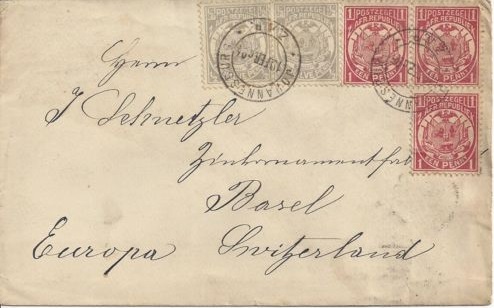 Herrn
J Schnetzler
Zinkornamentfab
Basel
Europa Switzerland
POSTZEGEL
Z. AFR. REPUBLIEK
EEN PENNY
1
1
POSTZEGEL
Z. AFR. REPUBLIEK
EEN PENNY
1
1
POSTZEGEL
Z. AFR. REPUBLIEK
EEN PENNY
1
1
JOHANNESBURG
Z.A.R.